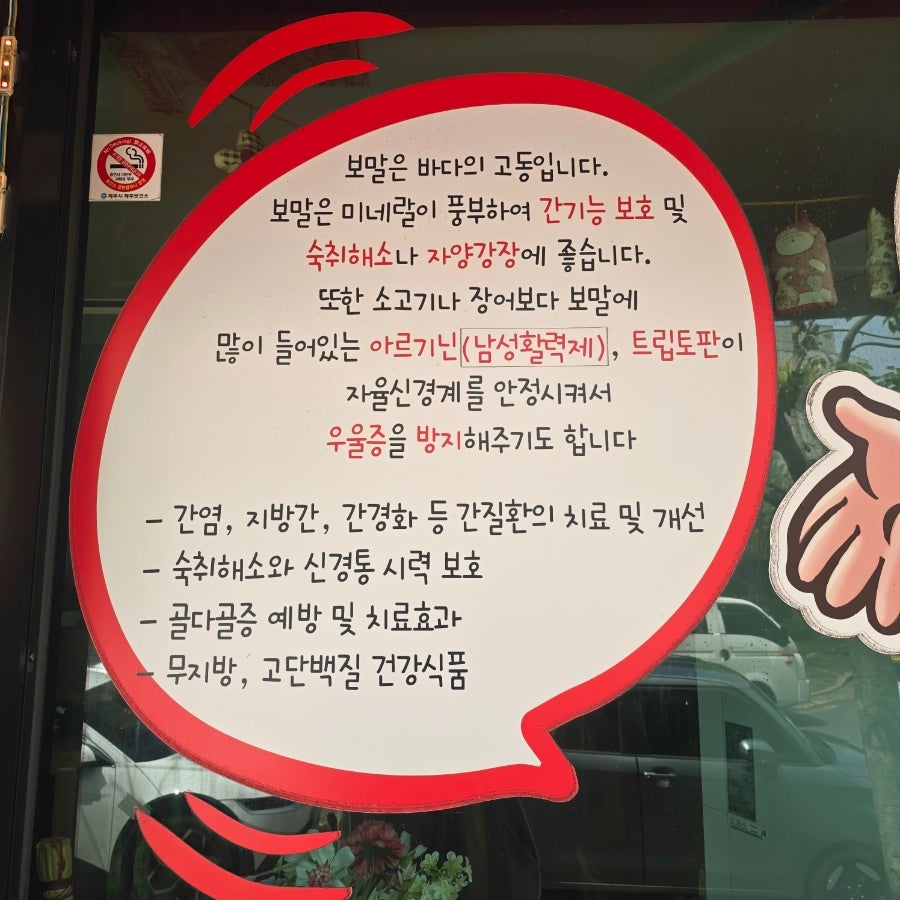 보말은 바다의 고동입니다.
보말은 미네랄이 풍부하여 간기능 보호 및
숙취해소나 자양강장에 좋습니다.
또한 소고기나 장어보다 보말에
많이 들어있는 아르기닌(남성활력제), 트립토판이
자율신경계를 안정시켜서
우울증을 방지해주기도 합니다
- 간염, 지방간, 간경화 등 간질환의 치료 및 개선
- 숙취해소와 신경통 시력 보호
- 골다골증 예방 및 치료효과
- 무지방, 고단백질 건강식품
No Smoking!
제주시 제주보건소